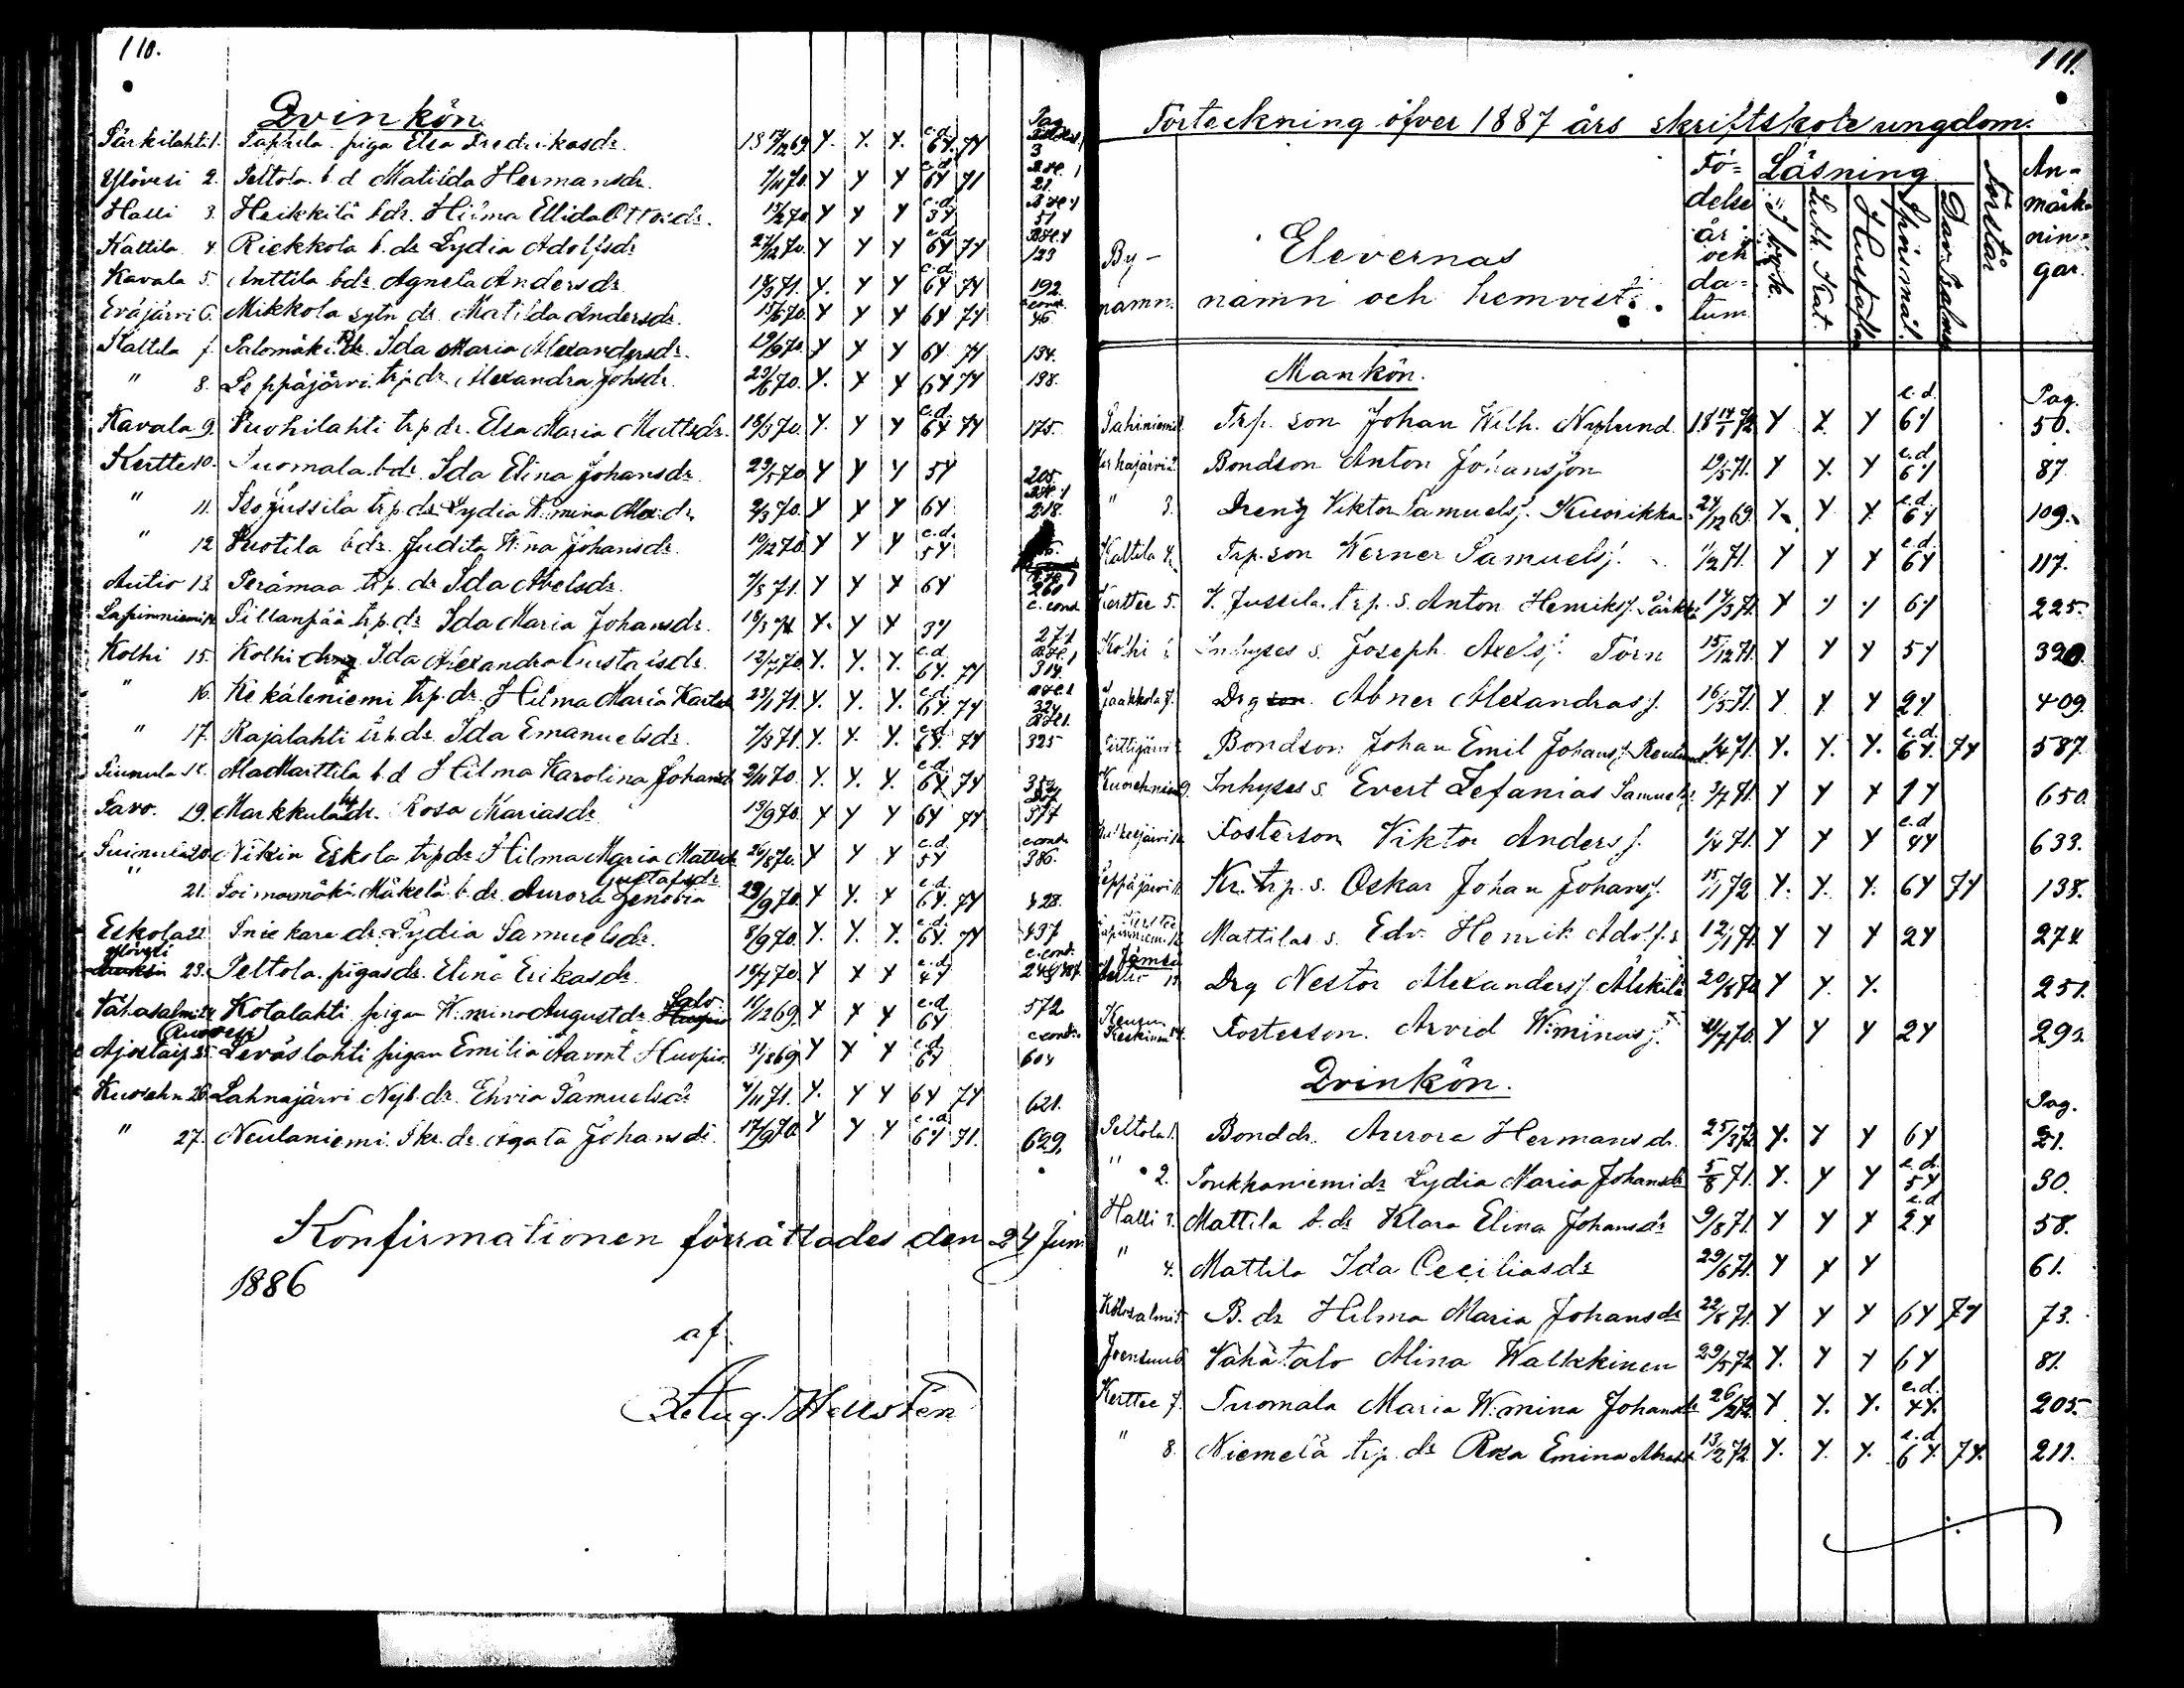 110.
Qvinkön.
Pag.
Särkilahti 1. Tappila piga Elsa Fredrikasdr. 18 17/12 69 Y. Y. Y. c.d. 6Y. 7Y 3
Ylövesi 2. Peltola b.d Matilda Hermansdr. 7/11 70. Y Y Y c.d. 6Y 71 21.
Halli 3. Heikkilä bdr. Hilma Ellida Ottosdr. 15/2 70 Y Y Y c.d. 3Y 51
Kaltila 4 Riekkola b.dr Lydia Adolfsdr 27/12 70. Y Y Y c.d. 6Y 7Y 123
Kavala 5. Anttila bdr. Agneta Andersdr. 19/3 71. Y. Y Y c.d. 6Y 7Y 192.
Eväjärvi 6. Mikkola sytn dr. Matilda Andersdr. 15/6 70. Y Y Y 6Y 7Y 46.
Kaltila 7. Salomäki dr. Ida Maria Alexandersdr. 19/9 70. Y Y Y 6Y 7Y 134.
" 8. Seppäjärvi trp dr. Alexandra Johsdr. 23/6 70. Y. Y Y 6Y 7Y 138.
Kavala 9. Puohilahti trp dr. Elsa Maria Mattsdr. 18/3 70. Y. Y Y c.d. 6Y 7Y 175.
Kertte 10. Tuomala b.dr. Ida Elina Johansdr. 29/5 70 Y Y Y 5Y 205.
" 11. Isojussila trp.dr Lydia W:mina Alex.dr. 2/3 70. Y Y Y 6Y 218.
" 12 Puotila b.dr. Judita W:na Johansdr. 10/12 70. Y Y Y c.d. 5Y
Autio 13. Perämaa trp. dr Ida Abelsdr. 7/3 71. Y Y Y 6Y 260
Lapinniemi 14 Pillanpää trp.dr Ida Maria Johansdr. Y. Y Y 3Y 271
Kolhi 15. Kolhi Ida Alexandra Gustafsdr. 12/7 70. Y. Y. Y. c.d. 6Y. 7Y 314.
" 16. Kekäleniemi trp.dr. Hilma Maria Karlsdr 23/1 71. Y. Y. Y. c.d. 6Y. 7Y 324
" 17. Rajalahti trp.dr. Ida Emanuelsdr. 7/3 71. Y. Y. Y. c.d. 6Y. 7Y 325
18. Marttila b.d Hilma Karolina Johansdr 9/11 70. Y. Y. Y. c.d. 6Y. 7Y
Savo. 19. Markkula dr. Rosa Mariasdr. 19/9 70. Y Y Y 6Y 7Y 377
20. Eskola trp dr. Hilma Maria Mattsdr 26/8 70. Y Y Y c.d. 5Y 386.
" 21. Mäkelä b.dr. Aurora Zenobia Gustafsdr. 29/9 70. Y Y. Y c.d. 6Y. 7Y 428.
Eskola 22 dr. Lydia Samuelsdr. 8/9 70. Y. Y. Y. c.d. 6Y. 7Y 437
23. Peltola pigasdr. Elina Erikasdr. 16/7 70. Y Y Y c.d. 4Y
Vähäsalmi 24 Kotalahti pigan W:mina Augustdr. Salo 11/2 69. Y Y Y c.d. 6Y 572
(Ruovesi)
25. Leväslahti pigan Emilia Huopio. 31/8 69 Y Y Y c.d. 6Y 604
26. Lahnajärvi Nyb.dr. Samuelsdr 4/11 71. Y. Y Y 6Y 7Y 621.
" 27. Neulaniemi Skr. dr. Agata Johansdr. 17/9 70. Y Y Y c.d. 6Y 71. 629.
Konfirmationen förrättades den 24 Juni
1886
af.
Aug. Hellstén
111.
Förteckning öfver 1887 års skriftskole ungdom.
By-namn. Elevernas namn och hemvist. Födelse år och datum Läsning I bok. Luth. Kat. Hustafla Spörsmål. Dav. Psalmer Förstår Anmärkningar.
Mankön.
Pag.
Pahiniemi 1. Trp. son Johan Wilh. Nylund. 18 14/1 72 Y Y. Y c.d. 6Y 50.
2. Bondson Anton Johansson 19/5 71. Y Y. Y c.d. 6Y 87.
" 3. Dreng Viktor Samuelsj. Kuorikka 24/12 69. Y. Y Y c.d. 6Y 109.
Kaltila 4. Trp. son Werner Samuelsj. 11/2 71. Y Y Y c.d. 6Y 117.
Kerttee 5. Y. Jussila trp. s. Anton Henriksj. 14/3 72. Y Y Y 6Y 225.
Kolhi 6 Inhyses s. Joseph Axelsj. Törn 15/12 71. Y Y Y 5Y 320.
Jaakkola 7. Drg Abner Alexandrasj. 16/5 71. Y Y Y 2Y 409.
8. Bondson Johan Emil Johansj. 1/4 71. Y. Y. Y. c.d. 6Y. 7Y 587.
9. Inhyses s. Evert Zefanias Samuelsj. 3/7 71. Y Y Y 1Y 650.
10. Fosterson Viktor Andersj. 1/4 71. Y Y Y c.d 4Y 633.
Seppäjärvi 11. Kr. trp. s. Oskar Johan Johansj. 15/1 72 Y. Y. Y. 6Y 7Y 138.
12. Mattilas s. Edv. Henrik Adolfs. 12/1 71. Y Y Y 2Y 274.
Jämsä
13. Drg Nestor Alexandersj. Alkilä 20/8 70 Y Y. Y. 251.
14. Fosterson Arvid W:minasj. Y Y Y 2Y 292.
Qvinkön.
Pag.
Peltola 1. Bonddr. Aurora Hermansdr. 25/3 72. Y. Y Y 6Y 21.
" 2. Poukkaniemi dr Lydia Maria Johansdr 5/8 71. Y. Y Y c.d. 5Y 30.
Halli 3. Mattila b.dr Klara Elina Johansdr 9/8 71. Y Y Y c.d 2Y 58.
" 4. Mattila Ida Ceciliasdr 29/6 71. Y Y Y 61.
5. B. dr Hilma Maria Johansdr 22/8 71. Y Y Y 6Y 7Y 73.
Joensuu 6 Vähätalo Alina Walkkinen 29/5 72 Y. Y Y 6Y 81.
Kerttee 7. Tuomala Maria W:mina Johansdr 26/2 72. Y Y. Y. c.d. 4Y. 205.
" 8. Niemelä trp. dr Rosa Emina 13/2 72. Y. Y. Y. c.d 6Y. 7Y. 211.